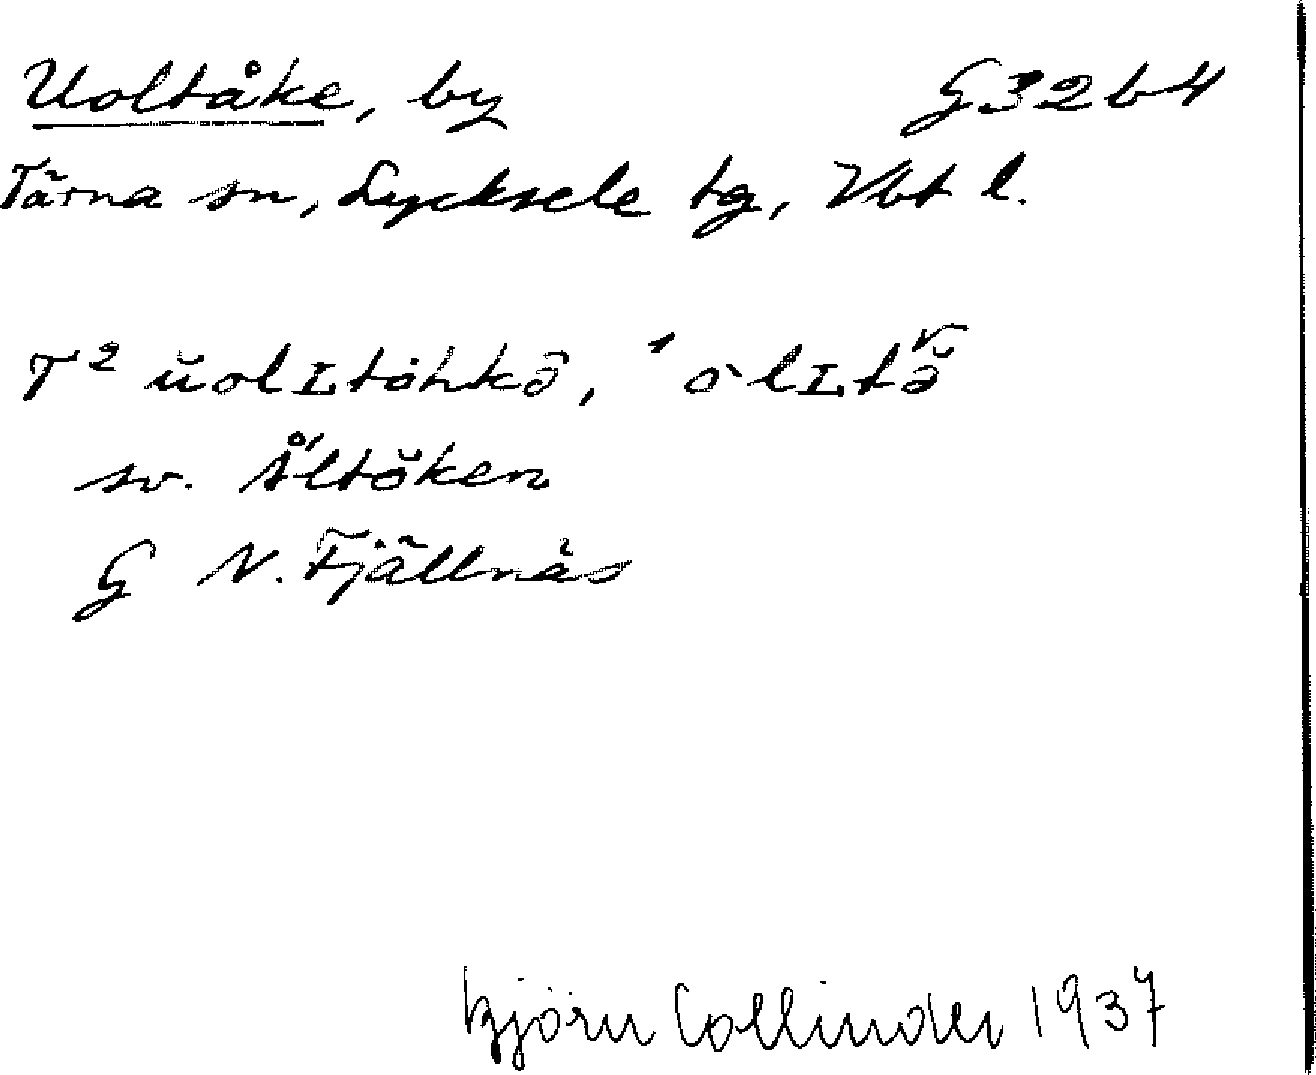 Uoltåke, by G32b4
Tärna sn, Lycksele tg, Vbt l.
T² ŭolʟtȯhkə̂,
sv. Åltŏken
G N. Fjällnäs
Björn Collinder 1937